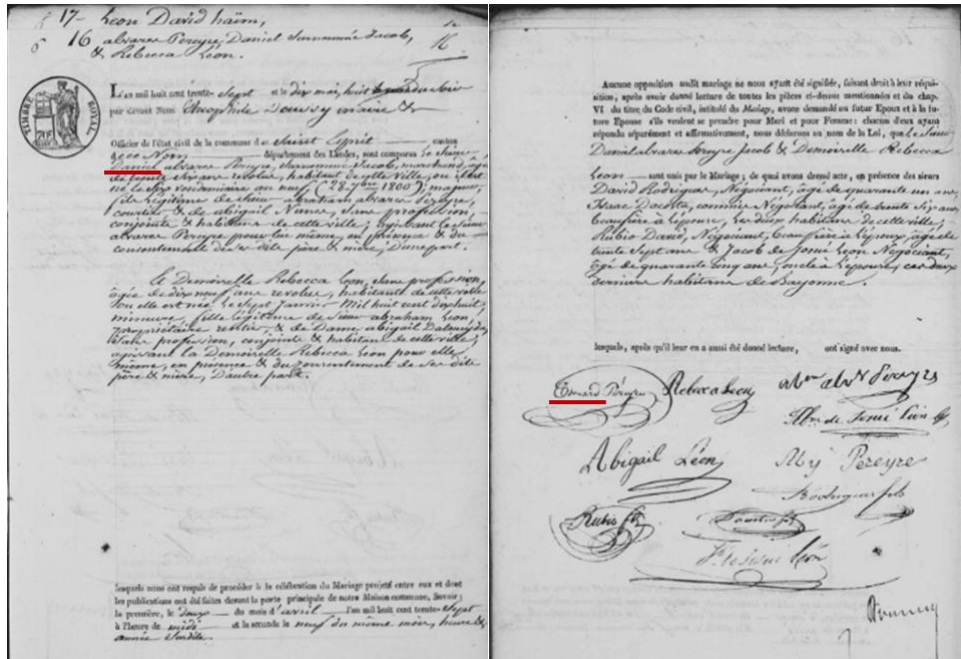 17- Leon David haïm,
16 alvares Pereyre, Daniel Surnommé Jacob,
& Rebecca Léon.
TIMBRE ROYAL
L'an mil huit cent trente-Sept et le dix mai, huit heures du Soir
par devant Nous Théophile maire &
Officier de l'état civil de la commune de Saint Esprit canton
département des Landes, sont comparus Le Sieur
Daniel alvares Pereyre, Surnommé Jacob, marchand, agé
de trente Six ans revolus, habitant de cette ville, ou il est
né le Six vendemiaire an neuf (28 7bre 1800) majeur,
fils légitime de Sieur abraham alvares Pereyre,
courtier & de abigail Nunes, Sans profession,
conjoints & habitans de cette ville; agissant Le Sieur
alvares Pereyre pour lui même, en présence & du
consentement de ses dits père & mère, D'une part.
& Demoiselle Rebecca Léon, Sans profession,
agée de dix neuf ans revolus, habitante de cette ville
ou elle est née le Sept Janvier mil huit cent dix huit,
mineure, fille légitime de Sieur abraham Léon,
propriétaire rentier & de Dame abigail
Sans profession, conjoints & habitans de cette ville;
agissant La Demoiselle Rebecca Léon pour elle
même, en présence & du consentement de ses dits
père & mère, D'autre part.
lesquels nous ont requis de procéder à la célébration du Mariage projeté entre eux et dont
les publications ont été faites devant la porte principale de notre Maison commune, Savoir;
la première, le deux du mois d'avril l'an mil huit cent trente-Sept
à l'heure de midi et la seconde le neuf du même mois, heure &
année Susdite.
Aucune opposition audit mariage ne nous ayant été signifiée, faisant droit à leur réquisition,
après avoir donné lecture de toutes les pièces ci-dessus mentionnées et du chap.
VI du titre du Code civil, intitulé du Mariage, avons demandé au futur Epoux et à la future
Epouse s'ils veulent se prendre pour Mari et pour Femme: chacun d'eux ayant
répondu séparément et affirmativement, nous déclarons au nom de la Loi, que Le Sieur
Daniel alvares Pereyre Jacob & Demoiselle Rebecca
Léon sont unis par le Mariage; de quoi avons dressé acte, en présence des sieurs
David Rodrigues, Négociant, âgé de quarante un ans,
Isaac Dacosta, commis Négociant, âgé de trente Six ans,
beaufrère à l'épouse, les deux habitans de cette ville,
Rubio David, Négociant, beaufrère à l'époux, agé de
trente Sept ans & Jacob de Josué Léon Négociant,
agé de quarante cinq ans, oncle à l'épouse, ces deux
derniers habitans de Bayonne.
lesquels, après qu'il leur en a aussi été donné lecture, ont signé avec nous.
Emard Péreyre Rebecca Leon abm alvs Pereyre
Abm de Josué Léon
Abigail Léon Aby Pereyre
Rodrigues fils
Rubio fils Dacosta fils
Js de Josué Léon